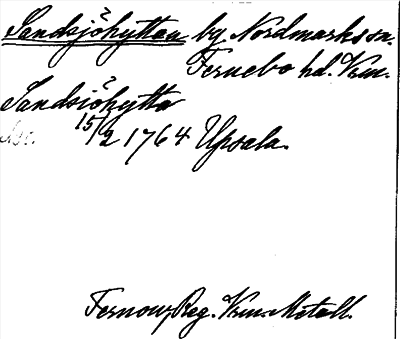 Sandsjöhyttan by, Nordmarks sn.
Fernebo hd. Vrm.
Sandsjöhytta
15/2 1764 Upsala.
Fernow, Reg. Vrm Metall.